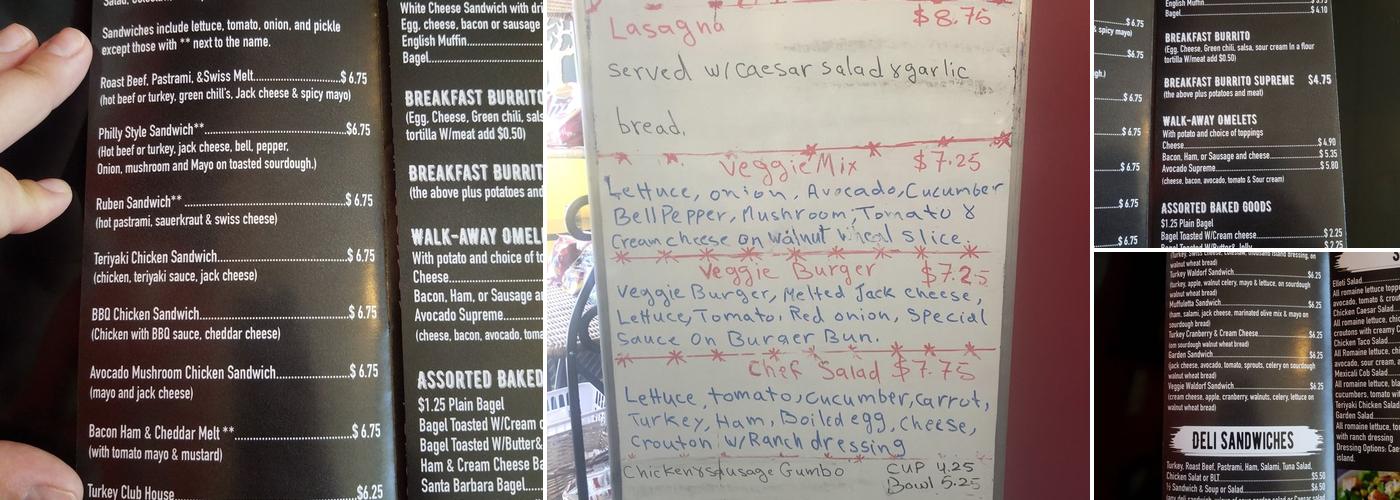 Sandwiches include lettuce, tomato, onion, and pickle
except those with ** next to the name.
Roast Beef, Pastrami, &Swiss Melt $ 6.75
(hot beef or turkey, green chill's, Jack cheese & spicy mayo)
Philly Style Sandwich** $6.75
(Hot beef or turkey, jack cheese, bell, pepper,
Onion, mushroom and Mayo on toasted sourdough.)
Ruben Sandwich** $ 6.75
(hot pastrami, sauerkraut & swiss cheese)
Teriyaki Chicken Sandwich $ 6.75
(chicken, teriyaki sauce, jack cheese)
BBQ Chicken Sandwich $ 6.75
(Chicken with BBQ sauce, cheddar cheese)
Avocado Mushroom Chicken Sandwich $ 6.75
(mayo and jack cheese)
Bacon Ham & Cheddar Melt ** $ 6.75
(with tomato mayo & mustard)
Turkey Club House $6.25
White Cheese Sandwich with
Egg, cheese, bacon or sausage
English Muffin
Bagel
BREAKFAST BURRITO
(Egg, Cheese, Green chili,
tortilla W/meat add $0.50)
BREAKFAST
(the above plus potatoes and
WALK-AWAY
With potato and choice of
Cheese
Bacon, Ham, or Sausage
Avocado Supreme
(cheese, bacon, avocado,
ASSORTED BAKED
$1.25 Plain Bagel
Bagel Toasted W/Cream
Bagel Toasted W/Butter&
Ham & Cream Cheese
Santa Barbara Bagel
Lasagna $8.75
served w/Caesar salad & garlic
bread.
Veggie Mix $7.25
Lettuce, onion, Avocado, Cucumber
Bell Pepper, Mushroom, Tomato &
Cream cheese on walnut wheat slice.
Veggie Burger $7.25
Veggie Burger, Melted Jack cheese,
Lettuce, Tomato, Red onion, special
Sauce On Burger Bun.
Chef Salad $7.75
Lettuce, tomato, cucumber, carrot,
Turkey, Ham, Boiled egg, cheese,
Crouton w/Ranch dressing
Chicken & Sausage Gumbo CUP 4.25
Bowl 5.25
$ 6.75
& spicy mayo)
$6.75
$ 6.75
$ 6.75
$ 6.75
$ 6.75
$ 6.75
English Muffin
Bagel $ 4.10
BREAKFAST BURRITO
(Egg, Cheese, Green chili, salsa, sour cream In a flour
tortilla W/meat add $0.50)
BREAKFAST BURRITO SUPREME $4.75
(the above plus potatoes and meat)
WALK-AWAY OMELETS
With potato and choice of toppings
Cheese $ 4.90
Bacon, Ham, or Sausage and cheese $ 5.35
Avocado Supreme $ 5.80
(cheese, bacon, avocado, tomato & Sour cream)
ASSORTED BAKED GOODS
$1.25 Plain Bagel
Bagel Toasted W/Cream cheese $ 2.25
walnut wheat bread)
Turkey Waldorf Sandwich $6.25
(turkey, apple, walnut celery, mayo & lettuce, on sourdough
walnut wheat bread)
Muffuletta Sandwich $6.25
(ham, salami, jack cheese, marinated olive mix & mayo on
sourdough bread)
Turkey Cranberry & Cream Cheese $6.25
(on sourdough walnut wheat bread)
Garden Sandwich $6.25
(jack cheese, avocado, tomato, sprouts, celery on sourdough
walnut wheat bread)
Veggie Waldorf Sandwich $6.25
(cream cheese, apple, cranberry, walnuts, celery, lettuce on
walnut wheat bread)
DELI SANDWICHES
Turkey, Roast Beef, Pastrami, Ham, Salami, Tuna Salad,
Chicken Salad or BLT $5.50
½ Sandwich & Soup or Salad $6.50
All romaine lettuce
avocado, tomato &
Chicken Caesar Salad
All romaine lettuce,
croutons with creamy
Chicken Taco Salad
All Romaine lettuce,
avocado, sour cream,
Mexicali Cob Salad
All romaine lettuce,
cucumbers, tomato
Teriyaki Chicken Salad
All romaine lettuce,
Garden Salad
All romaine lettuce,
with ranch dressing
Dressing Options:
island.